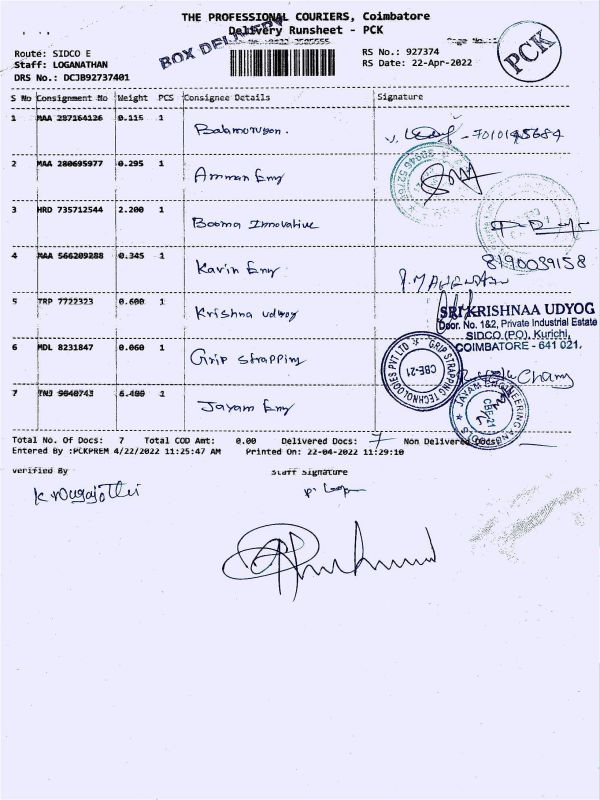 THE PROFESSIONAL COURIERS, Coimbatore
Delivery Runsheet - PCK
BOX DELIVERY
PCK
Route: SIDCO E
Staff: LOGANATHAN
DRS No.: DCJB92737401
RS No.: 927374
RS Date: 22-Apr-2022
S No Consignment No Weight PCS Consignee Details Signature
1 MAA 287164126 0.115 1 Balamurugan. 7010145684
2 MAA 280695977 0.295 1 Amman Eng
3 HRD 735712544 2.200 1 Booma Innovative
4 MAA 566209288 0.345 1 Kavin Eng 8190039158
5 TRP 7722323 0.600 1 Krishna udyog
SRI KRISHNAA UDYOG
Door. No. 1&2, Private Industrial Estate
SIDCO (PO), Kurichi,
COIMBATORE - 641 021.
6 MDL 8231847 0.060 1 Grip strapping
GRIP STRAPPING TECHNOLOGIES PVT LTD
CBE-21
7 TNJ 9040743 6.400 1 Jayam Eng
JAYAM ENGINEERING
CBE-21
Total No. Of Docs: 7 Total COD Amt: 0.00 Delivered Docs: 7 Non Delivered Docs:
Entered By :PCKPREM 4/22/2022 11:25:47 AM Printed On: 22-04-2022 11:29:10
verified By Staff Signature